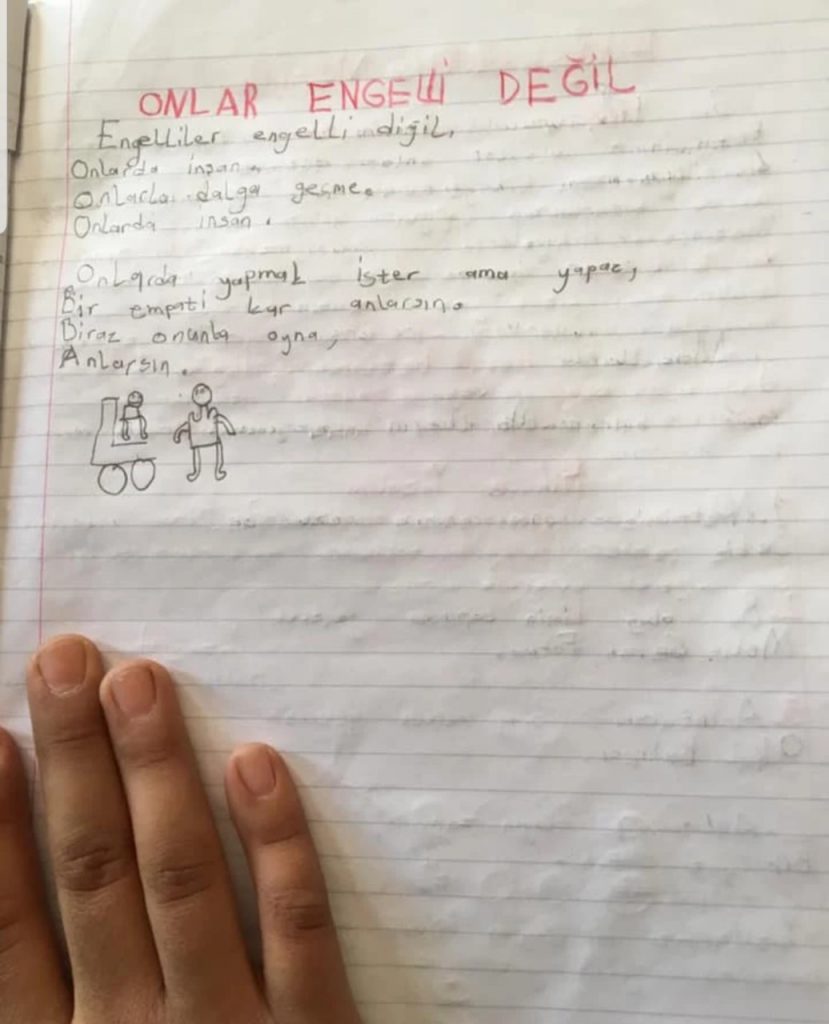 ONLAR ENGELLİ DEĞİL
Engelliler engelli diğil,
Onlarda insan.
Onlarla dalga geçme.
Onlarda insan.
Onlarda yapmak ister ama yapaz,
Bir empati kur anlarsın.
Biraz onunla oyna,
Anlarsın.